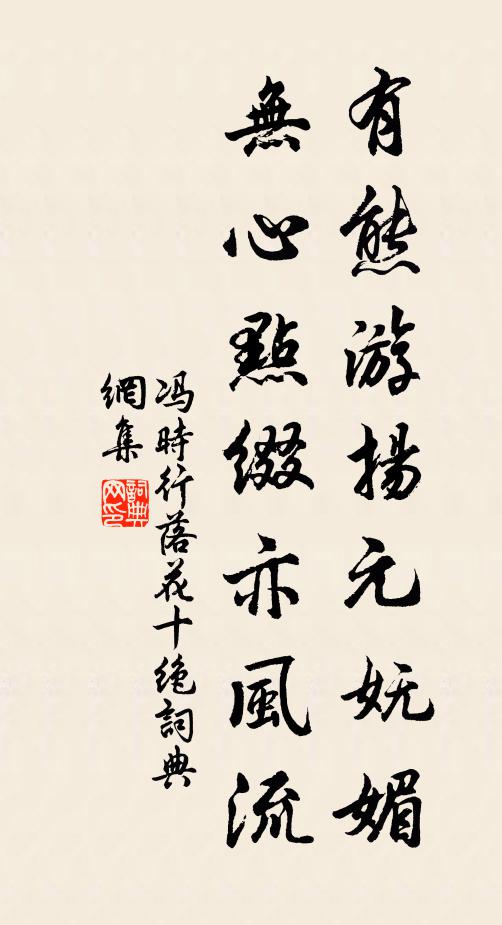 有熊游揚元妩媚
無心點綴亦風流
冯時行落花十绝詞典
網集
詞典
网印